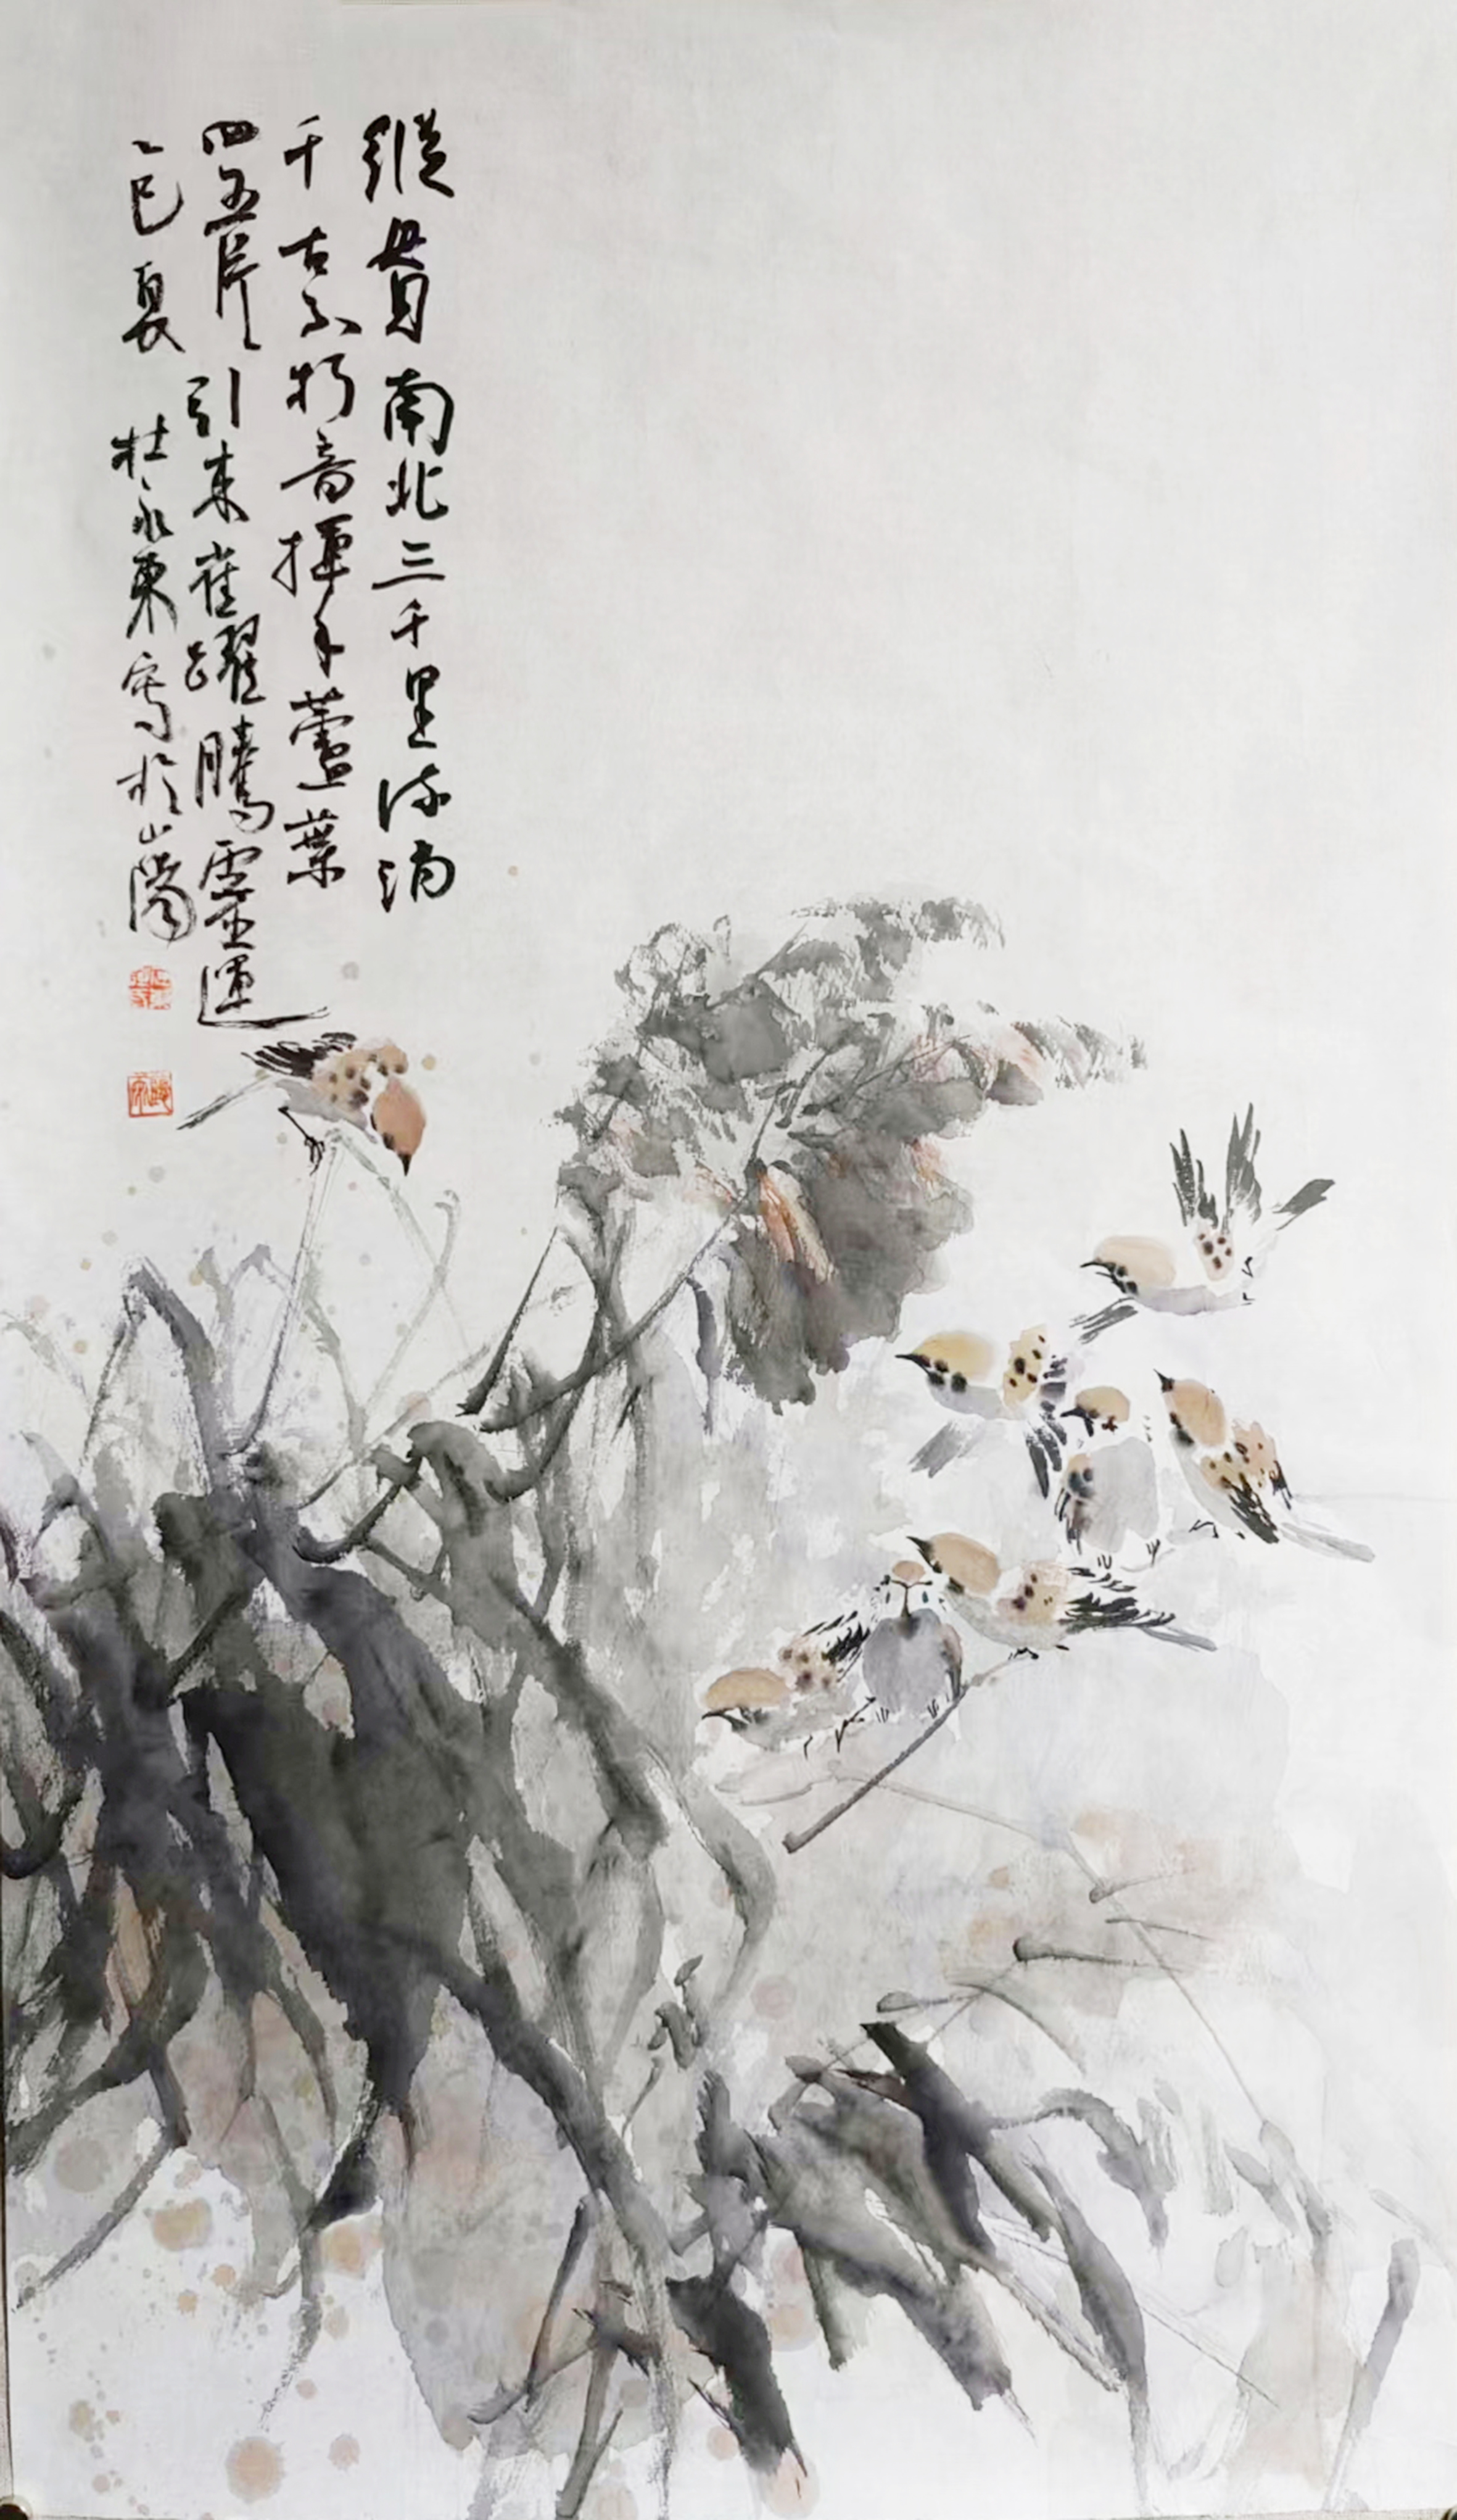 縱貫南北三千里流淌
千古不朽音揮手蘆葉
四五片引來雀躍騰靈運
乙巳夏 杜永東寫於山陽